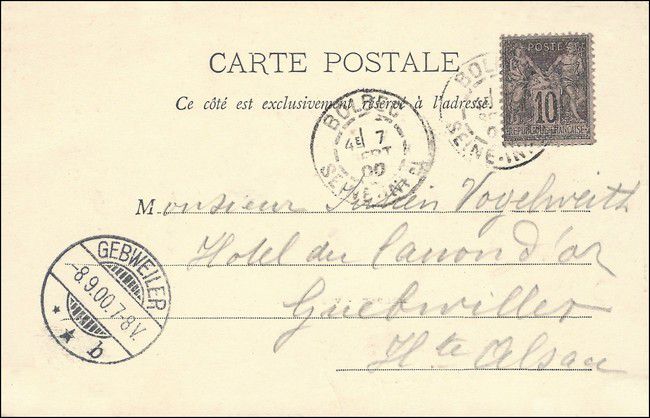 CARTE POSTALE
Ce côté est exclusivement réservé à l'adresse.
POSTE
10
RÉPUBLIQUE FRANÇAISE
BOLBEC
SEINE-INF
BOLBEC
4E 7
SEPT
00
SEINE-INF
Monsieur Julien Vogelweith
Hotel du Canon d'or
Guebwiller
Hte Alsace
GEBWEILER
8.9.00.7-8V.
* * b